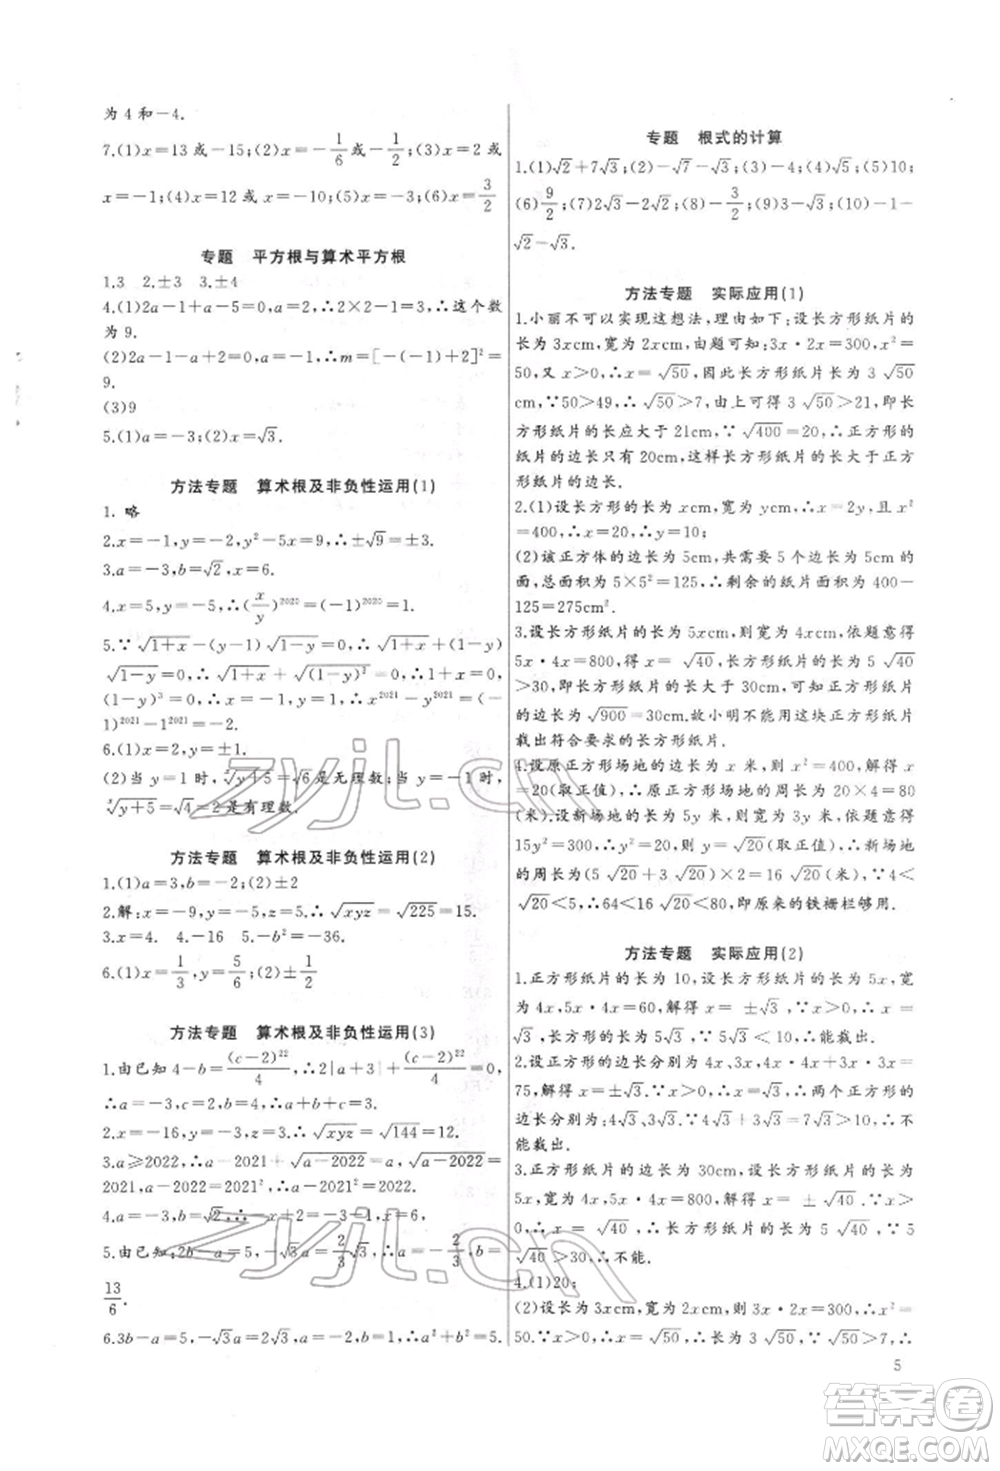 为 4 和-4.
7.(1)x=13 或-15;(2)x=-1/6或-1/2;(3)x=3 或
x=-1;(4)x=12 或 x=-10;(5)x=-3;(6)x=3/2
专题 平方根与算术平方根
1.3 2.±3 3.±4
4.(1)2a-1+a-5=0,a=2,∴2×2-1=3,∴这个数
为 9.
(2)2a-1-a+2=0,a=-1,∴m=[-(-1)+2]²=
9.
(3)9
5.(1)a=-3;(2)x=√3.
方法专题 算术根及非负性运用(1)
1. 略
2.x=-1,y=-2,y²-5x=9,∴±√9=±3.
3.a=-3,b=√2,x=6.
4.x=5,y=-5,∴(x/y)²⁰²⁵=(-1)²⁰²⁵=1.
5.∵√1+x-(y-1)√1-y=0,∴√1+x+(1-y)
√1-y=0,∴√1+x+√(1-y)³=0,∴1+x=0,
(1-y)³=0,∴x=-1,y=1,∴x²⁰²¹-y²⁰²¹=(-
1)²⁰²¹-1²⁰²¹=-2.
6.(1)x=2,y=±1.
(2)当 y=1 时,ˣ√y+5=√6是无理数;当 y=-1时,
ˣ√y+5=√4=2是有理数.
方法专题 算术根及非负性运用(2)
1.(1)a=3,b=-2;(2)±2
2.解:x=-9,y=-5,z=5.∴√xyz=√225=15.
3.x=4. 4.-16 5.-b²=-36.
6.(1)x=1/3,y=5/6;(2)±1/2
方法专题 算术根及非负性运用(3)
1.由已知 4-b=(c-2)²²/4,∴2|a+3|+(c-2)²²/4=0,
∴a=-3,b=4,c=2,∴a+b+c=3.
2.x=-16,y=-3,z=3.∴√xyz=√144=12.
3.∵a⩾2022,∴a-2021+√a-2022=a,√a-2022=
2021,a-2022=2021²∴a-2021²=2022.
4.a=-3,b=√2,∴-x+2=-3-1,x=6,
5.由已知:2b-a=5,-√3a=2/3√3,∴a=-2/3,b=
13/6.
6.3b-a=5,-√3a=2√3,a=-2,b=1,√a²+b²=5.
专题 根式的计算
1.(1)√2+7√3;(2)-√7-√3;(3)-4;(4)√5;(5)10;
(6)9/2;(7)2√3-2√2;(8)-3/2;(9)3-√3;(10)-1-
√2-√3.
方法专题 实际应用(1)
1.小丽不可以实现这想法,理由如下:设长方形纸片的
长为 3xcm,宽为 2xcm,由题可知:3x·2x=300,x²=
50,又 x>0,∴x=√50,因此长方形纸片长为 3√50
cm,∵50>49,∴√50>7,由上可得 3√50>21,即长
方形纸片的长应大于 21cm,∵√400=20,∴正方形的
的纸片的边长只有 20cm,这样长方形纸片的长大于正方
形纸片的边长.
2.(1)设长方形的长为 xcm,宽为 ycm,∴x=2y,且 x²
=400,∴x=20,∴y=10;
(2)该正方体的边长为 5cm,共需要 5 个边长为 5cm 的
正方形面积为 5×5²=125,∴剩余的纸片面积为 400-
125=275cm².
3.设长方形纸片的长为 5xcm,则宽为 4xcm,依题意得
5x·4x=800,∴x=√40,长方形纸片的长为 5√40
>30,即长方形纸片的长大于 30cm,可知正方形纸片
的边长为√900=30cm.故小明不能用这块正方形纸片
裁出符合要求的长方形纸片.
4.设原正方形场地的边长为 x 米,∴x²=400,解得 x
=20(取正值),∴原正方形场地的周长为 20×4=80
(米).设新场地的长为 5y 米,则宽为 3y 米,依题意得
15y²=300,解得 y=√20(取正值),∴新场地
的周长为(5√20+3√20)×2=16√20(米).∵4<
√20<5,∴64<16√20<80,即原来的铁栅栏够用.
方法专题 实际应用(2)
1.正方形纸片的长为 10,设长方形纸片的长为 5x,宽
为 4x,5x·4x=60,解得 x=±√3,∵x>0,∴x=
√3,长方形纸片的长为 5√3,∵5√3<10,∴能裁出.
2.设正方形的边长分别为 4x、3x,4x·4x+3x·3x=
75,解得 x=±√3,∵x>0,∴x=√3,∴两个正方形的
边长分别为:4√3、3√3,∵4√3+3√3=7√3>10,∴不
能裁出.
3.正方形纸片的边长为 30cm,设长方形纸片的长为 5x,
宽为 4x,5x·4x=800,解得 x=±√40.∵x>
0,∴x=√40,∴长方形纸片的长为 5√40,∵5
√40>30,∴不能.
4.(1)20;
(2)设长方形的长为 3xcm,宽为 2xcm,3x·2x=300,x²=
50.∵x>0,∴x=√50,∴长为 3√50,∵√50>7,∴
5
zyjl.cn
zyjl.cn
答案圈
MXQE.COM